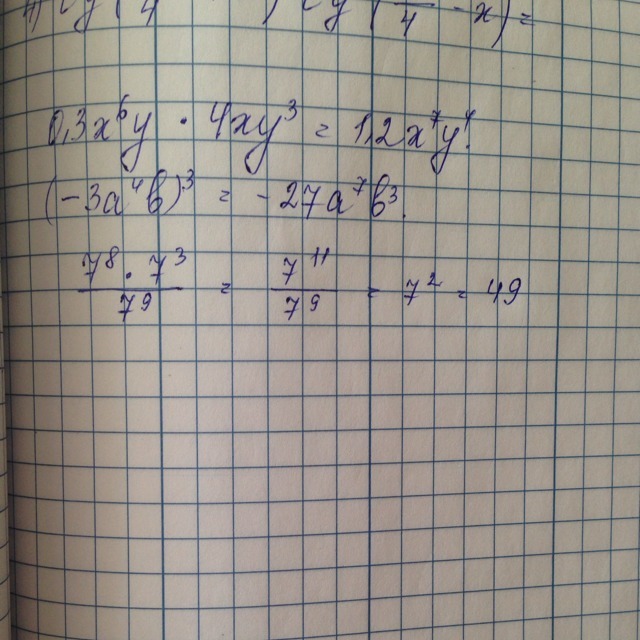 0,3x⁶y · 4xy³ = 1,2x⁷y⁴
(-3a⁴b)³ = -27a⁷b³.
7⁸ · 7³ / 7⁹ = 7¹¹ / 7⁹ = 7² = 49